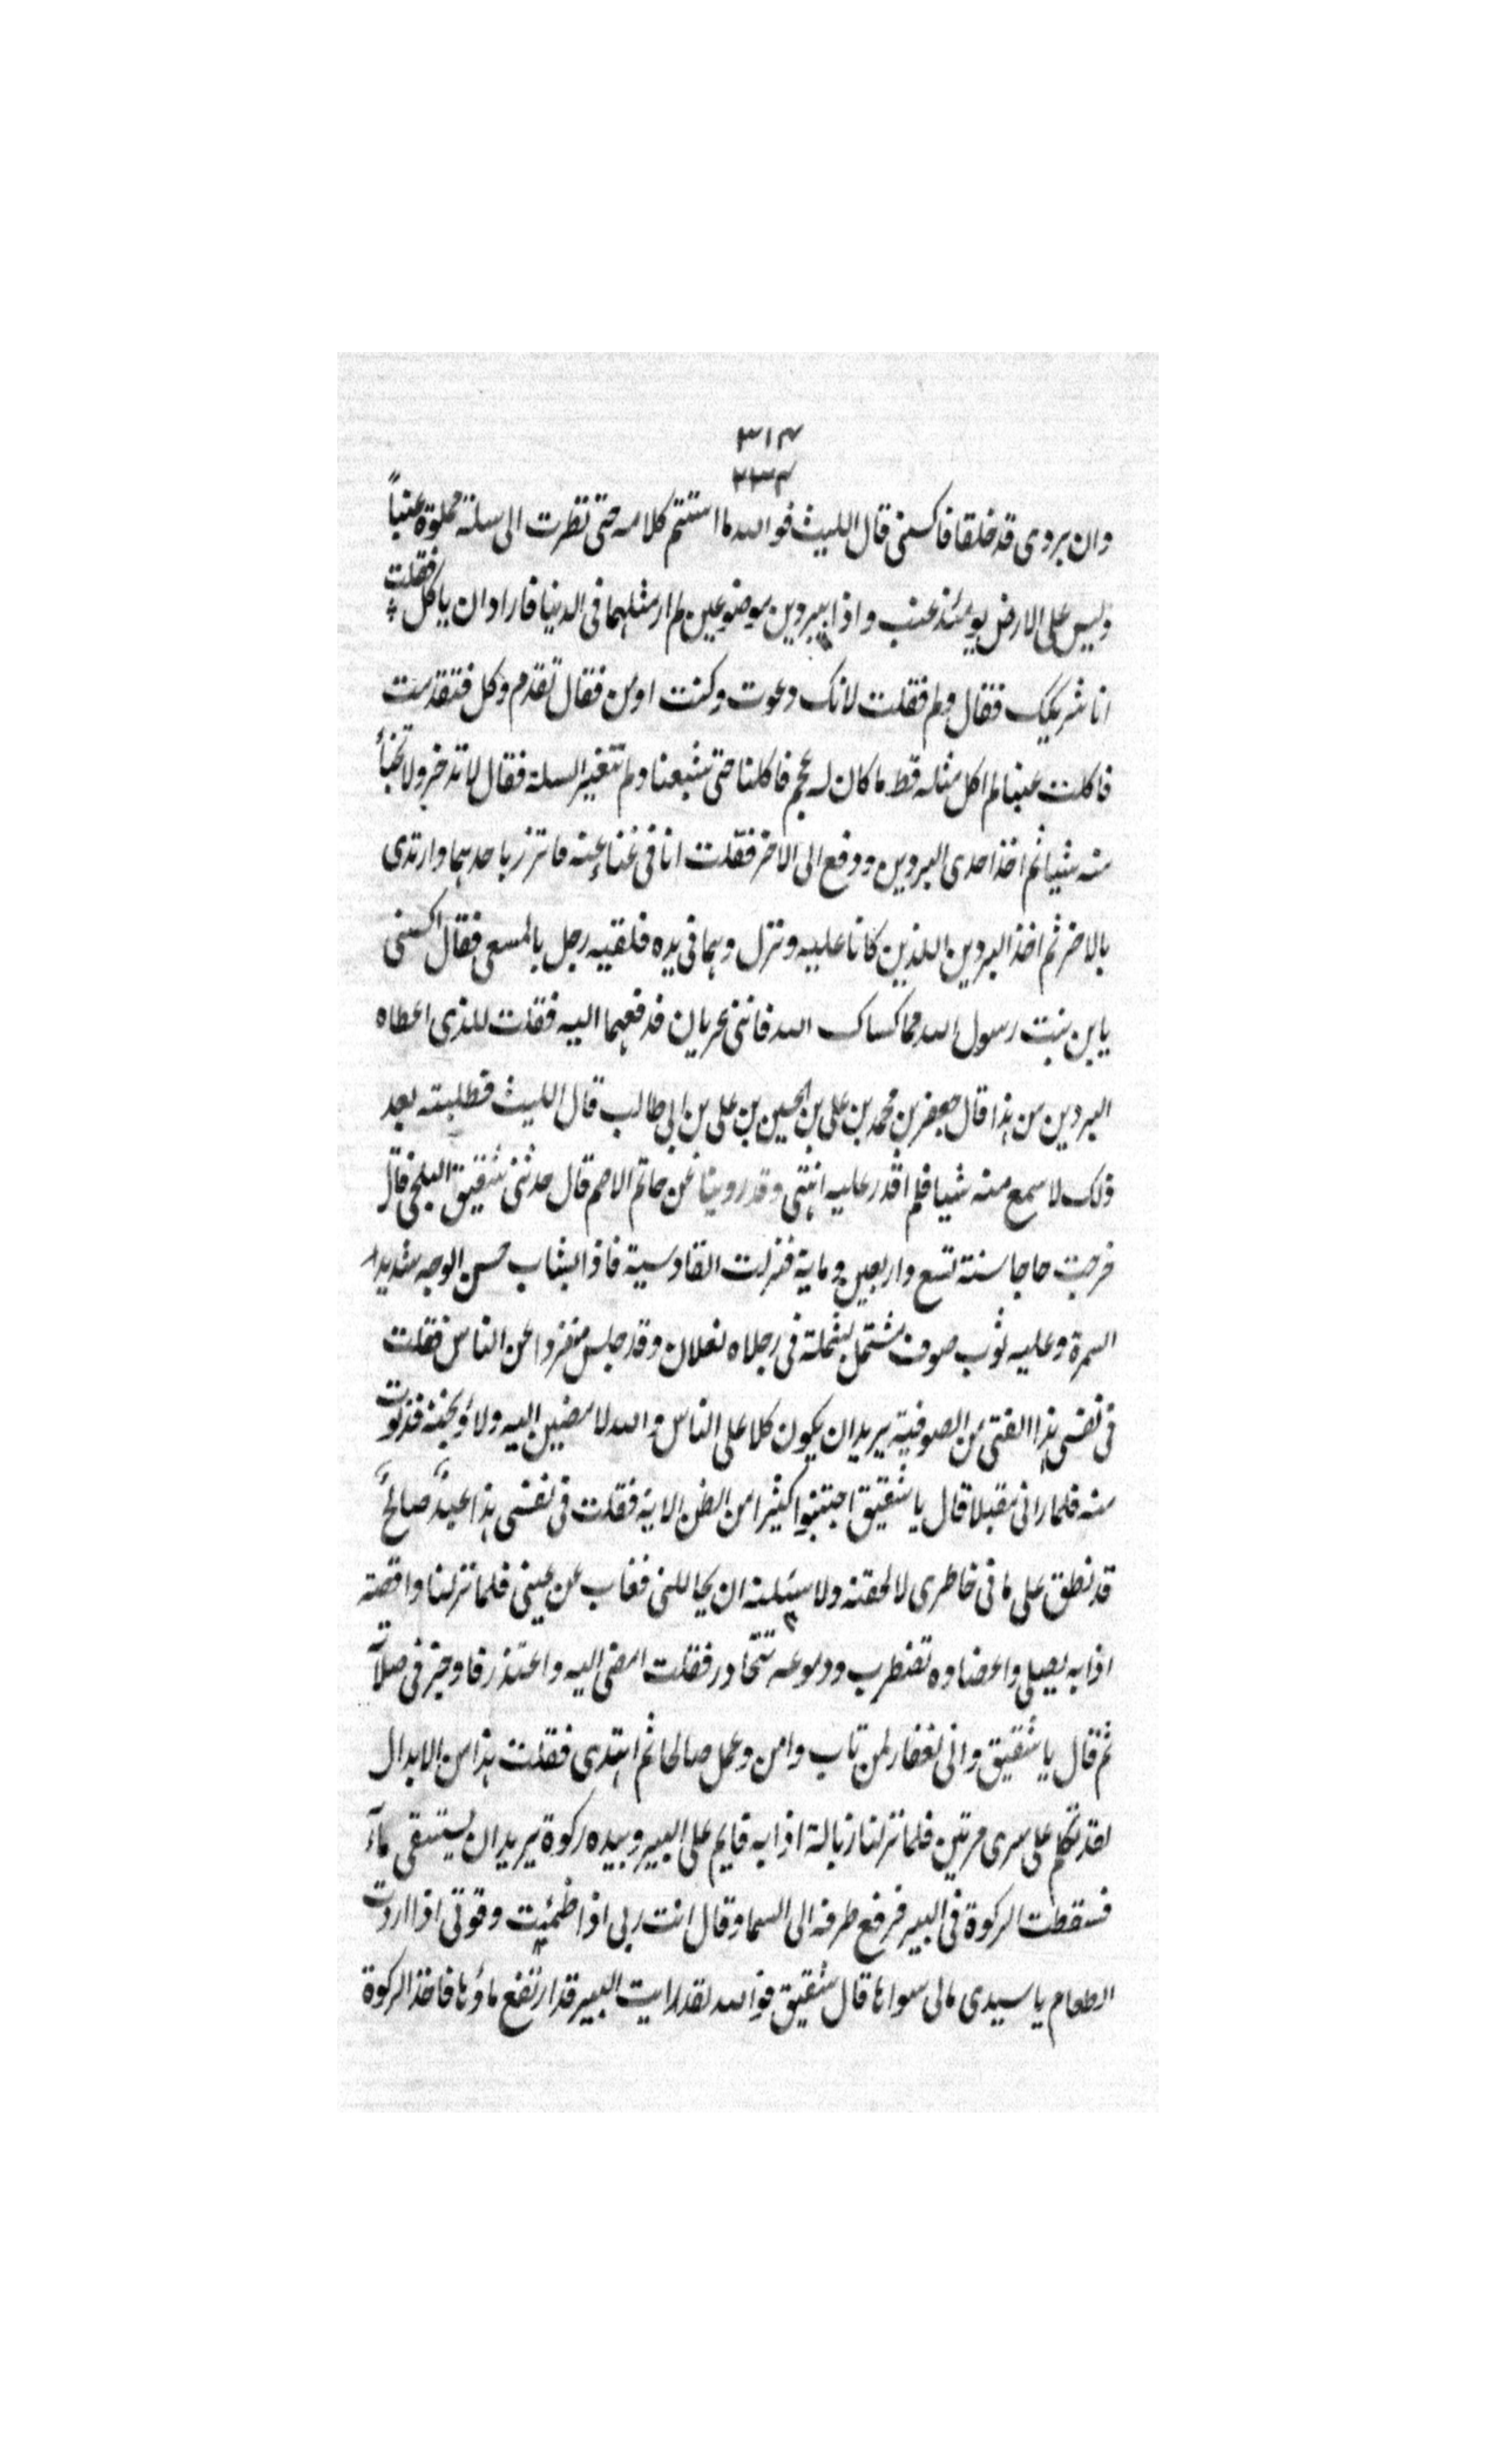 ٣١٤
٣٣٤
وان بردى قد خلقا فاكسنى قال الليث فوالله ما استتم كلامه حتى نظرت الى سلة مملوة عنباً
وليس على الارض يومئذ عنب واذا ببردين موضوعين لم ار مثلهما فى الدنيا فاراد ان ياكل فقلت
انا شريكك فقال ولم فقلت لانك دعوت وكنت اومن فقال تقدم وكل فتقدمت
فاكلت عنبا لم اكل مثله قط ما كان له عجم فاكلنا حتى شبعنا ولم تتغير السلة فقال لا تدخر ولا تخبأ
منه شيا ثم اخذ احدى البردين ودفع الى الاخر فقلت انا فى غناء عنه فاتزر باحدهما وارتدى
بالاخر ثم اخذ البردين اللذين كانا عليه ونزل وهما فى يده فلقيه رجل بالمسعى فقال اكسنى
يابن بنت رسول الله مما كساك الله فاننى عريان فدفعهما اليه فقلت للذى اعطاه
البردين من هذا قال جعفر بن محمد بن على بن الحسين بن على بن ابى طالب قال الليث فطلبته بعد
ذلك لاسمع منه شيا فلم اقدر عليه انتهى وقد روينا عن حاتم الاصم قال حدثنى شقيق البلخى قال
خرجت حاجا سنة تسع واربعين وماية فنزلت القادسية فاذا بشاب حسن الوجه شديد
السمرة وعليه ثوب صوف مشتمل بشملة فى رجلاه نعلان وقد جلس منفردا عن الناس فقلت
فى نفسى هذا الفتى من الصوفية يريد ان يكون كلا على الناس والله لامضين اليه ولاوبخنه فدنوت
منه فلما رانى مقبلا قال يا شقيق اجتنبوا كثيرا من الظن الاية فقلت فى نفسى هذا عبدٌ صالحٌ
قد نطق على ما فى خاطرى لالحقنه ولاسئلنه ان يحاللنى فغاب عن عينى فلما نزلنا واقصة
اذا به يصلى واعضاوه تضطرب ودموعه تتحادر فقلت امضى اليه واعتذر فاوجز فى صلاته
ثم قال يا شقيق وانى لغفار لمن تاب وامن وعمل صالحا ثم اهتدى فقلت هذا من الابدال
لقد تكلم على سرى مرتين فلما نزلنا زبالة اذا به قايم على البير وبيده ركوة يريد ان يستقى ماء
فسقطت الركوة فى البير فرفع طرفه الى السما وقال انت ربى اذا ظمئت وقوتى اذا اردت
الطعام يا سيدى مالى سواها قال شقيق فوالله لقد رايت البير قد ارتفع ماؤها فاخذ الركوة